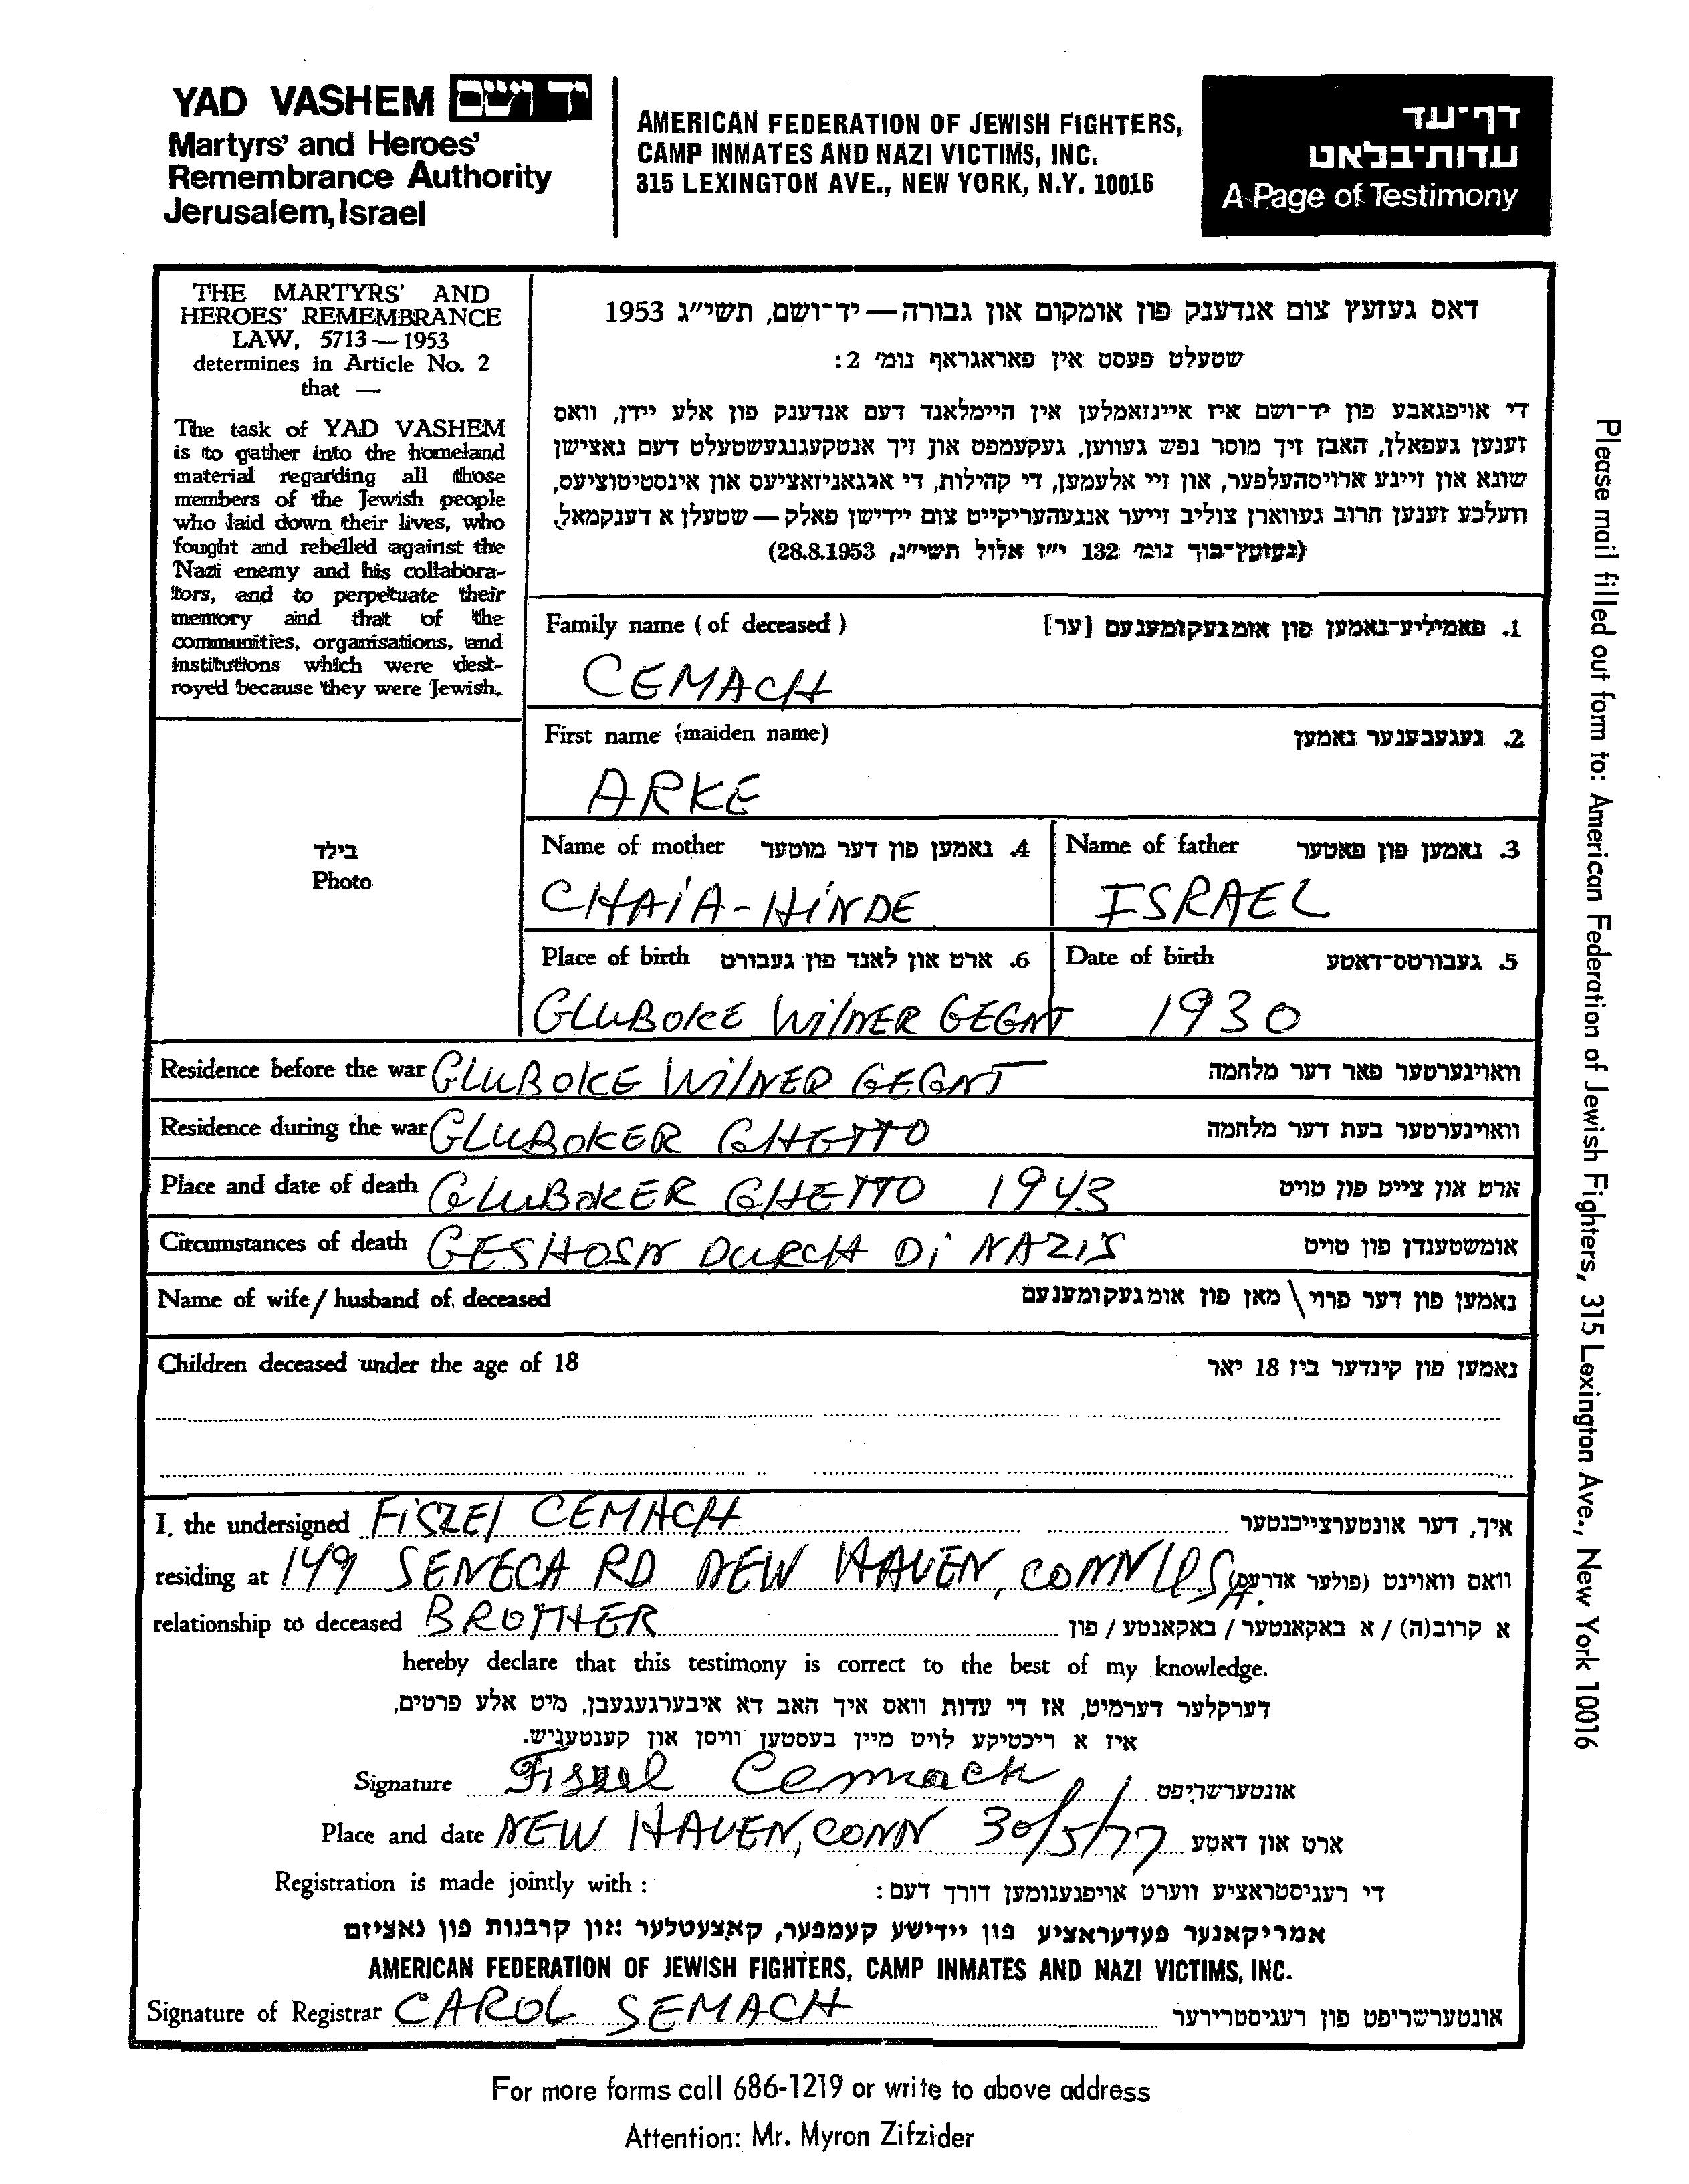 YAD VASHEM יד ושם
Martyrs' and Heroes'
Remembrance Authority
Jerusalem, Israel
AMERICAN FEDERATION OF JEWISH FIGHTERS,
CAMP INMATES AND NAZI VICTIMS, INC.
315 LEXINGTON AVE., NEW YORK, N.Y. 10016
דף־עד
עדות־בלאט
A Page of Testimony
THE MARTYRS' AND
HEROES' REMEMBRANCE
LAW, 5713—1953
determines in Article No. 2
that —
The task of YAD VASHEM
is to gather into the homeland
material regarding all those
members of the Jewish people
who laid down their lives, who
fought and rebelled against the
Nazi enemy and his collabora-
tors, and to perpetuate their
memory and that of the
communities, organisations, and
institutions which were dest-
royed because they were Jewish.
דאס געזעץ צום אנדענק פון אומקום און גבורה — יד־ושם, תשי״ג 1953
שטעלט פעסט אין פאראגראף נומ׳ 2:
די אויפגאבע פון יד־ושם איז איינזאמלען אין היימלאנד דעם אנדענק פון אלע יידן, וואס
זענען געפאלן, האבן זיך מוסר נפש געווען, געקעמפט און זיך אנטקעגנגעשטעלט דעם נאצישן
שונא און זיינע ארויסהעלפער, און זיי אלעמען, די קהילות, די ארגאניזאציעס און אינסטיטוציעס,
וועלכע זענען חרוב געווארן צוליב זייער אנגעהעריקייט צום יידישן פאלק — שטעלן א דענקמאל.
(געזעץ־בוך נומ׳ 132 י״ז אלול תשי״ג, 28.8.1953)
Family name (of deceased) 1. פאמיליע־נאמען פון אומגעקומענעם [ער]
CEMACH
First name (maiden name) 2. געגעבענער נאמען
ARKE
בילד
Photo
Name of mother 4. נאמען פון דער מוטער Name of father 3. נאמען פון פאטער
CHAIA-HINDE ISRAEL
Place of birth 6. ארט און לאנד פון געבורט Date of birth 5. געבורטס־דאטע
GLUBOKE WILNER GEGNT 1930
Residence before the war GLUBOKE WILNER GEGNT וואוינערטער פאר דער מלחמה
Residence during the war GLUBOKER GHETTO וואוינערטער בעת דער מלחמה
Place and date of death GLUBOKER GHETTO 1943 ארט און צייט פון טויט
Circumstances of death GESHOSN DURCH DI NAZIS אומשטענדן פון טויט
Name of wife / husband of deceased נאמען פון דער פרוי \ מאן פון אומגעקומענעם
Children deceased under the age of 18 נאמען פון קינדער ביז 18 יאר
I, the undersigned FISZEL CEMACH איך, דער אונטערצייכנטער
residing at 149 SENECA RD NEW HAVEN, CONN USA. וואס וואוינט (פולער אדרעס)
relationship to deceased BROTHER א קרוב(ה) / א באקאנטער / באקאנטע / פון
hereby declare that this testimony is correct to the best of my knowledge.
דערקלער דערמיט, אז די עדות וואס איך האב דא איבערגעגעבן, מיט אלע פרטים,
איז א ריכטיקע לויט מיין בעסטען וויסן און קענטעניש.
Signature Fiszel Cemach אונטערשריפט
Place and date NEW HAVEN, CONN 30/5/77 ארט און דאטע
Registration is made jointly with : די רעגיסטראציע ווערט אויפגענומען דורך דעם :
אמריקאנער פעדעראציע פון יידישע קעמפער, קאצעטלער און קרבנות פון נאציזם
AMERICAN FEDERATION OF JEWISH FIGHTERS, CAMP INMATES AND NAZI VICTIMS, INC.
Signature of Registrar CAROL SEMACH אונטערשריפט פון רעגיסטרירער
For more forms call 686-1219 or write to above address
Attention: Mr. Myron Zifzider
Please mail filled out form to: American Federation of Jewish Fighters, 315 Lexington Ave., New York 10016